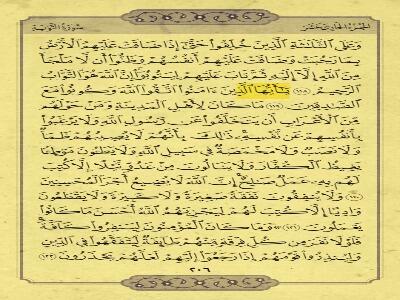 الجزء الحادي عشر سورة التوبة
وَعَلَى ٱلثَّلَٰثَةِ ٱلَّذِينَ خُلِّفُوا۟ حَتَّىٰٓ إِذَا ضَاقَتْ عَلَيْهِمُ ٱلْأَرْضُ
بِمَا رَحُبَتْ وَضَاقَتْ عَلَيْهِمْ أَنفُسُهُمْ وَظَنُّوٓا۟ أَن لَّا مَلْجَأَ
مِنَ ٱللَّهِ إِلَّآ إِلَيْهِ ثُمَّ تَابَ عَلَيْهِمْ لِيَتُوبُوٓا۟ إِنَّ ٱللَّهَ هُوَ ٱلتَّوَّابُ
ٱلرَّحِيمُ ١١٨ يَٰٓأَيُّهَا ٱلَّذِينَ ءَامَنُوا۟ ٱتَّقُوا۟ ٱللَّهَ وَكُونُوا۟ مَعَ
ٱلصَّٰدِقِينَ ١١٩ مَا كَانَ لِأَهْلِ ٱلْمَدِينَةِ وَمَنْ حَوْلَهُم
مِّنَ ٱلْأَعْرَابِ أَن يَتَخَلَّفُوا۟ عَن رَّسُولِ ٱللَّهِ وَلَا يَرْغَبُوا۟
بِأَنفُسِهِمْ عَن نَّفْسِهِۦ ذَٰلِكَ بِأَنَّهُمْ لَا يُصِيبُهُمْ ظَمَأٌ
وَلَا نَصَبٌ وَلَا مَخْمَصَةٌ فِى سَبِيلِ ٱللَّهِ وَلَا يَطَـُٔونَ مَوْطِئًا
يَغِيظُ ٱلْكُفَّارَ وَلَا يَنَالُونَ مِنْ عَدُوٍّ نَّيْلًا إِلَّا كُتِبَ
لَهُم بِهِۦ عَمَلٌ صَٰلِحٌ إِنَّ ٱللَّهَ لَا يُضِيعُ أَجْرَ ٱلْمُحْسِنِينَ
١٢٠ وَلَا يُنفِقُونَ نَفَقَةً صَغِيرَةً وَلَا كَبِيرَةً وَلَا يَقْطَعُونَ
وَادِيًا إِلَّا كُتِبَ لَهُمْ لِيَجْزِيَهُمُ ٱللَّهُ أَحْسَنَ مَا كَانُوا۟
يَعْمَلُونَ ١٢١ ۞ وَمَا كَانَ ٱلْمُؤْمِنُونَ لِيَنفِرُوا۟ كَآفَّةً
فَلَوْلَا نَفَرَ مِن كُلِّ فِرْقَةٍ مِّنْهُمْ طَآئِفَةٌ لِّيَتَفَقَّهُوا۟ فِى ٱلدِّينِ
وَلِيُنذِرُوا۟ قَوْمَهُمْ إِذَا رَجَعُوٓا۟ إِلَيْهِمْ لَعَلَّهُمْ يَحْذَرُونَ ١٢٢
٢٠٦